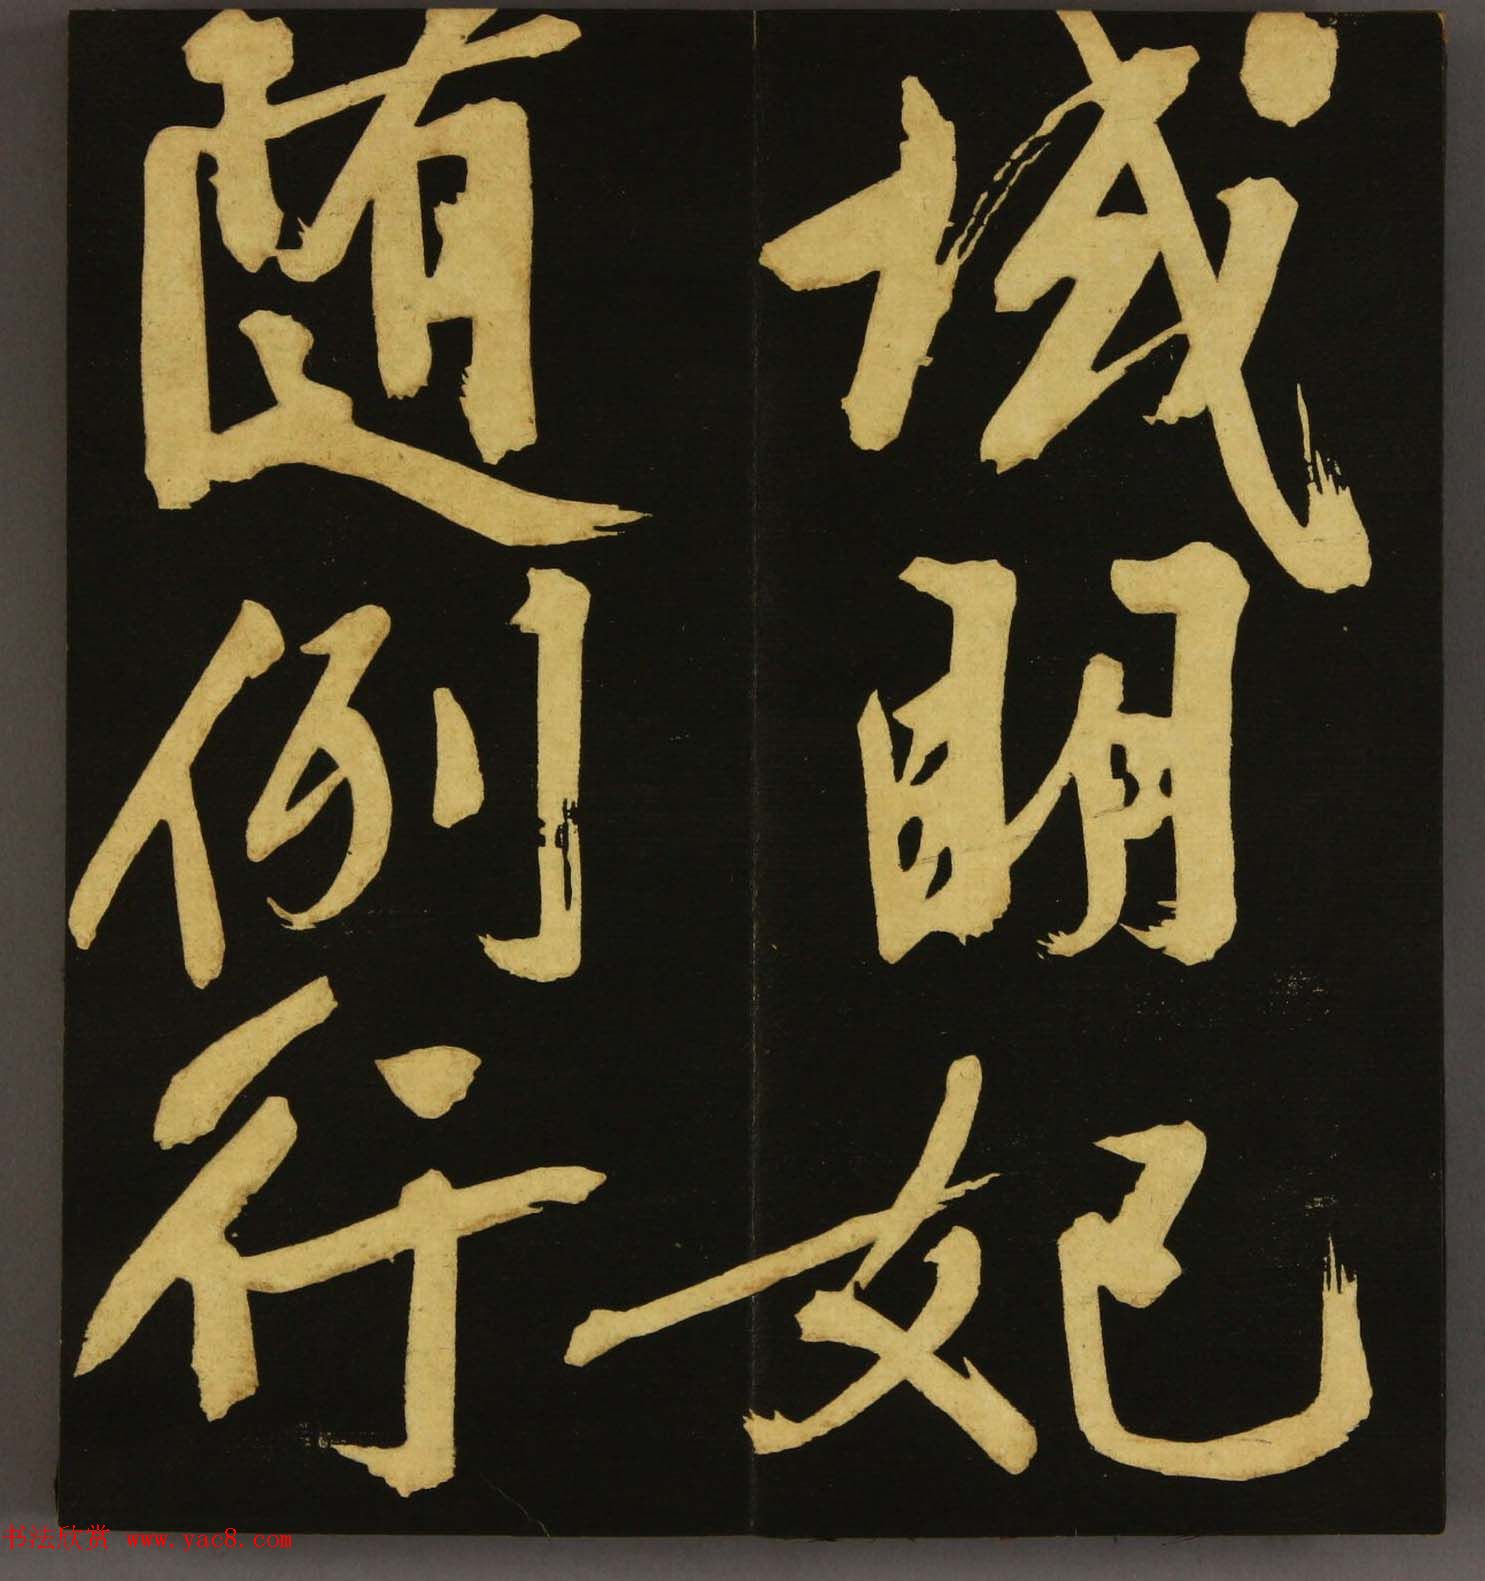 域明妃
随例行
书法欣赏 www.yac8.com